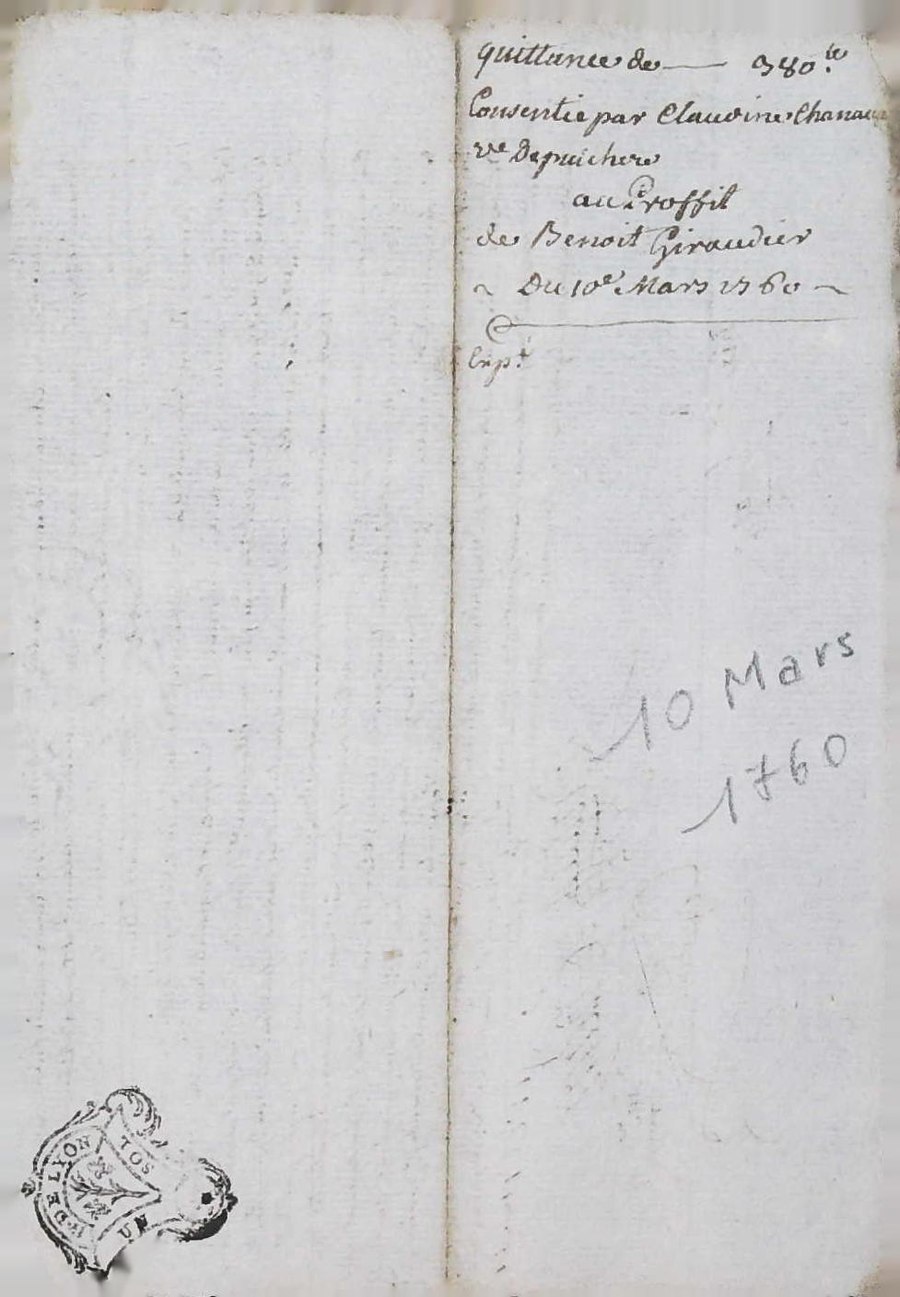 quittance de — 380.ᵗᵗ
Consentie par Claudine Chanaux
vᵉ Depuichere
au Proffit
de Benoit Giraudier
~ Du 10ᵉ Mars 1760 ~
Exp.ᵉ
10 Mars
1760
DE LYON
SOL
UN